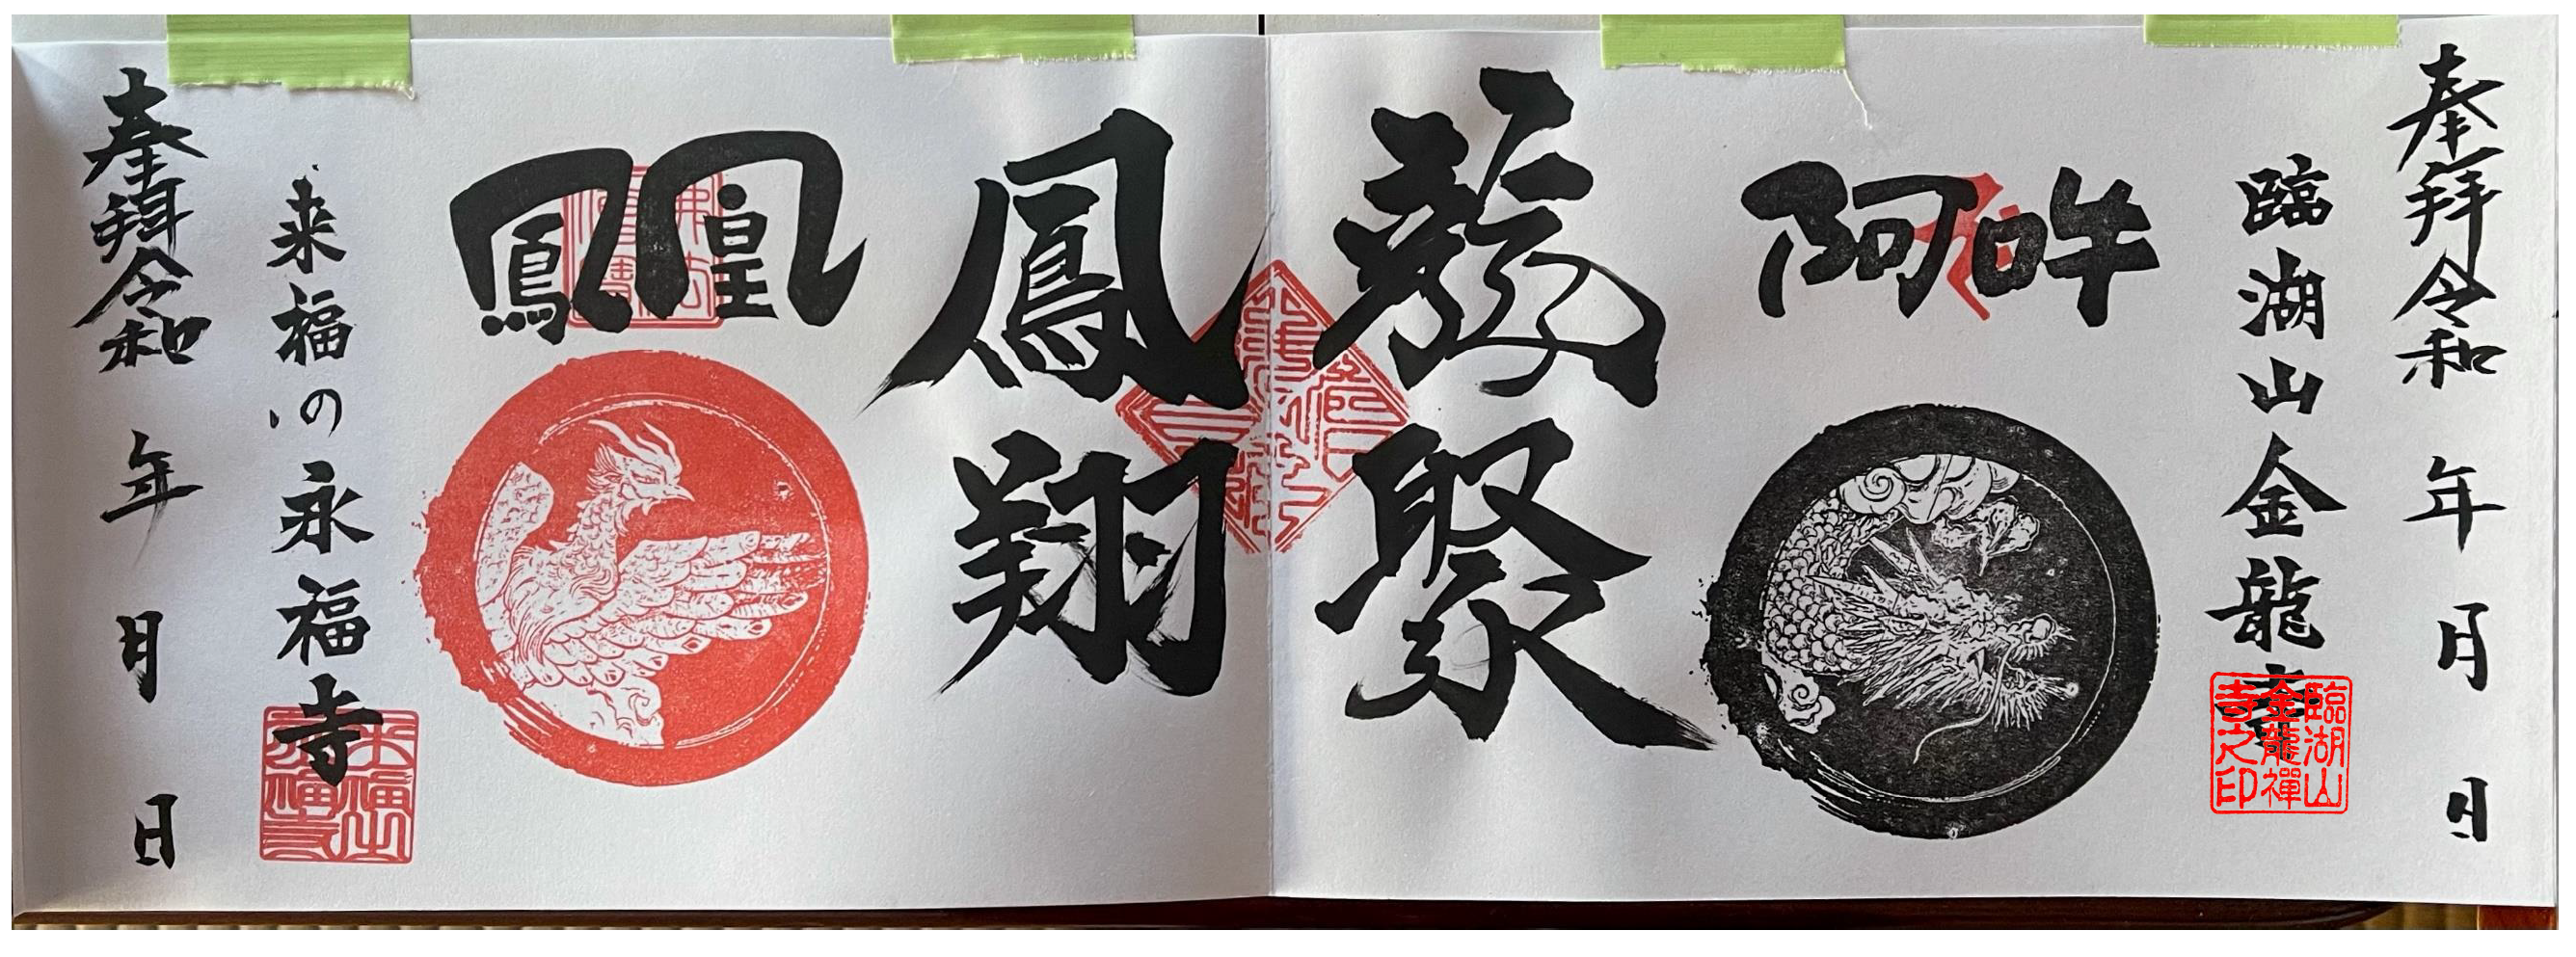 奉拝令和 年 月 日
臨湖山金龍寺
臨湖山
金龍禅
寺之印
阿吽
龍聚
鳳翔
鳳凰
来福の永福寺
来福山
永福寺
奉拝令和 年 月 日